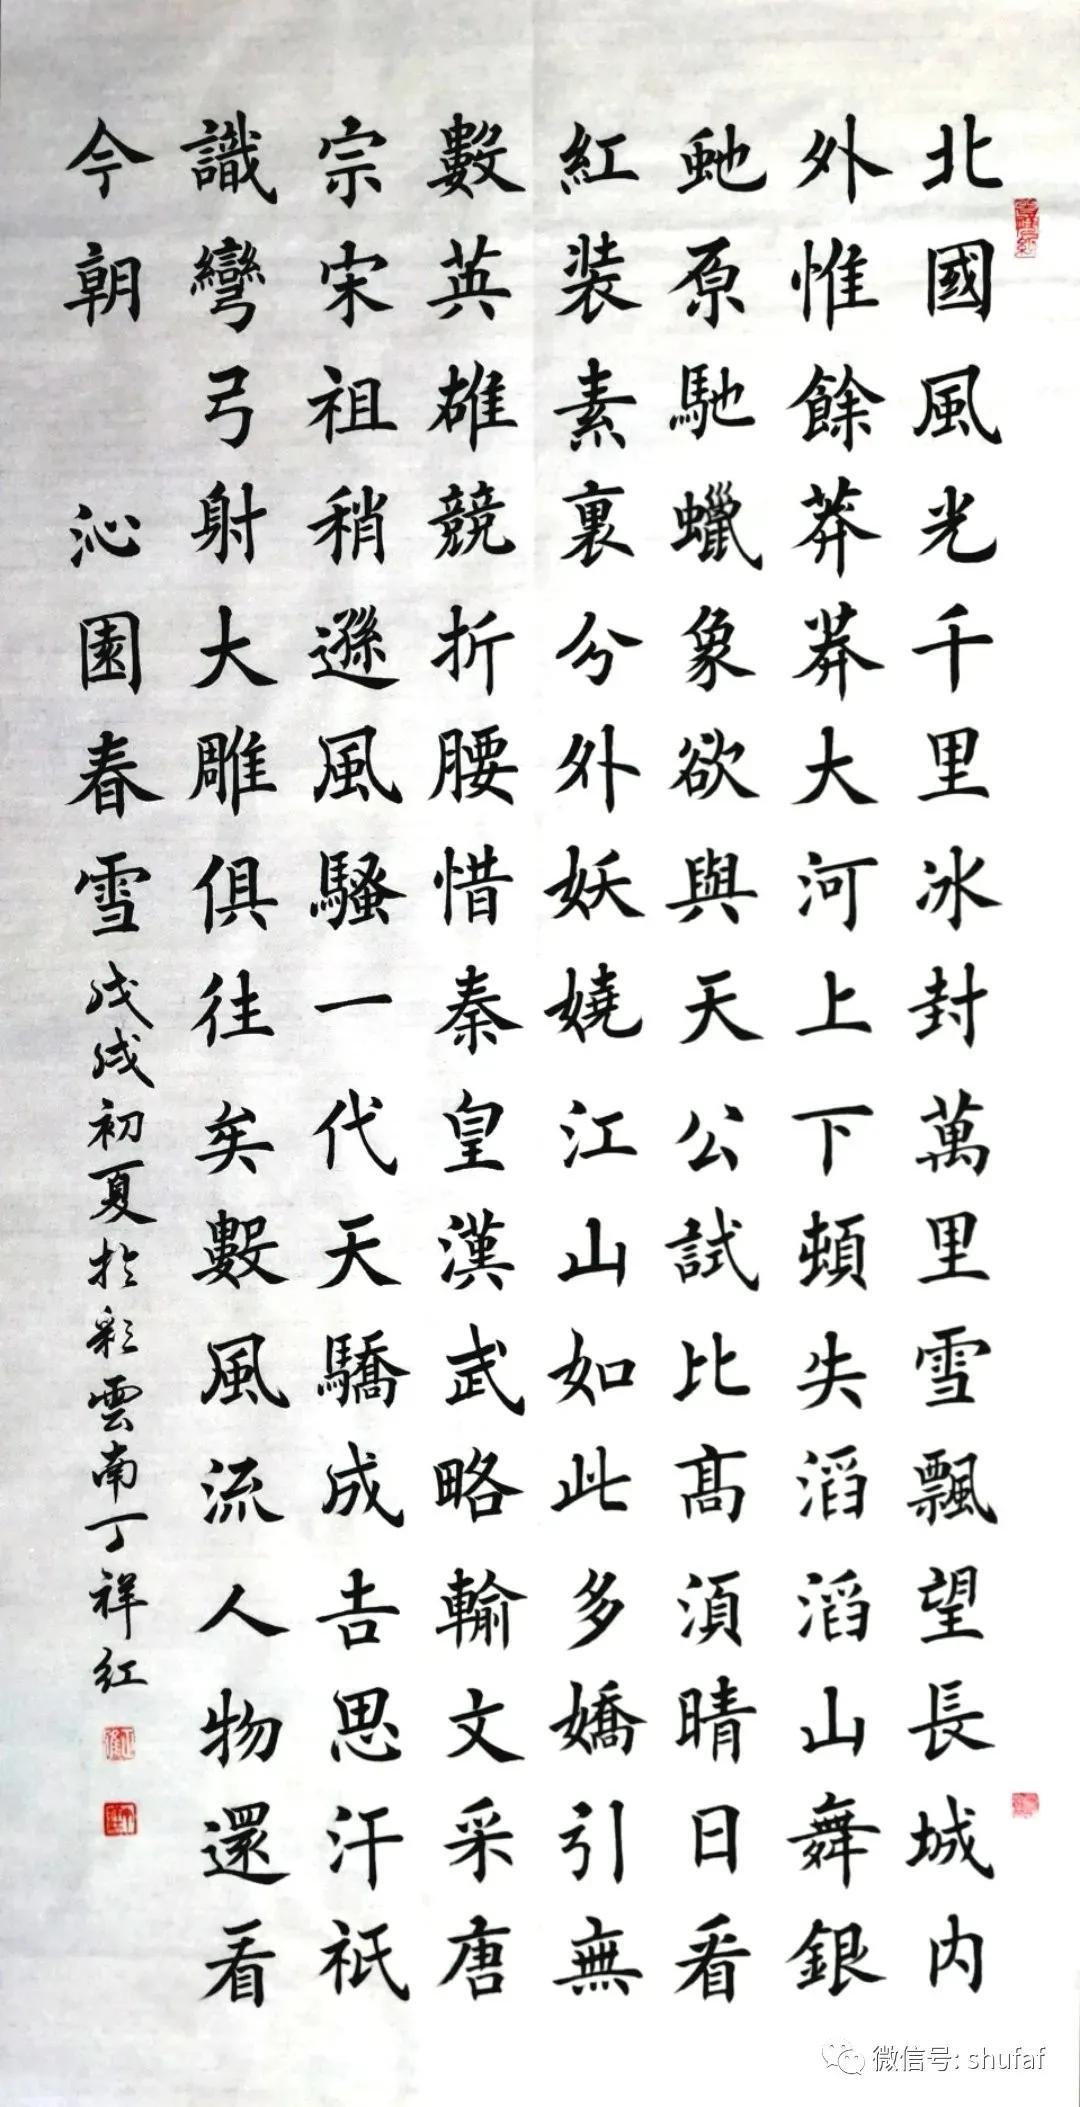 北國風光千里冰封萬里雪飄望長城内
外惟餘莽莽大河上下頓失滔滔山舞銀
虵原馳蠟象欲與天公試比髙須晴日看
紅装素裏分外妖嬈江山如此多嬌引無
數英雄競折腰惜秦皇漢武略輸文采唐
宗宋祖稍遜風騷一代天驕成吉思汗祇
識彎弓射大雕俱往矣數風流人物還看
今朝 沁園春雪 戊戌初夏於彩雲南丁祥红
微信号: shufaf